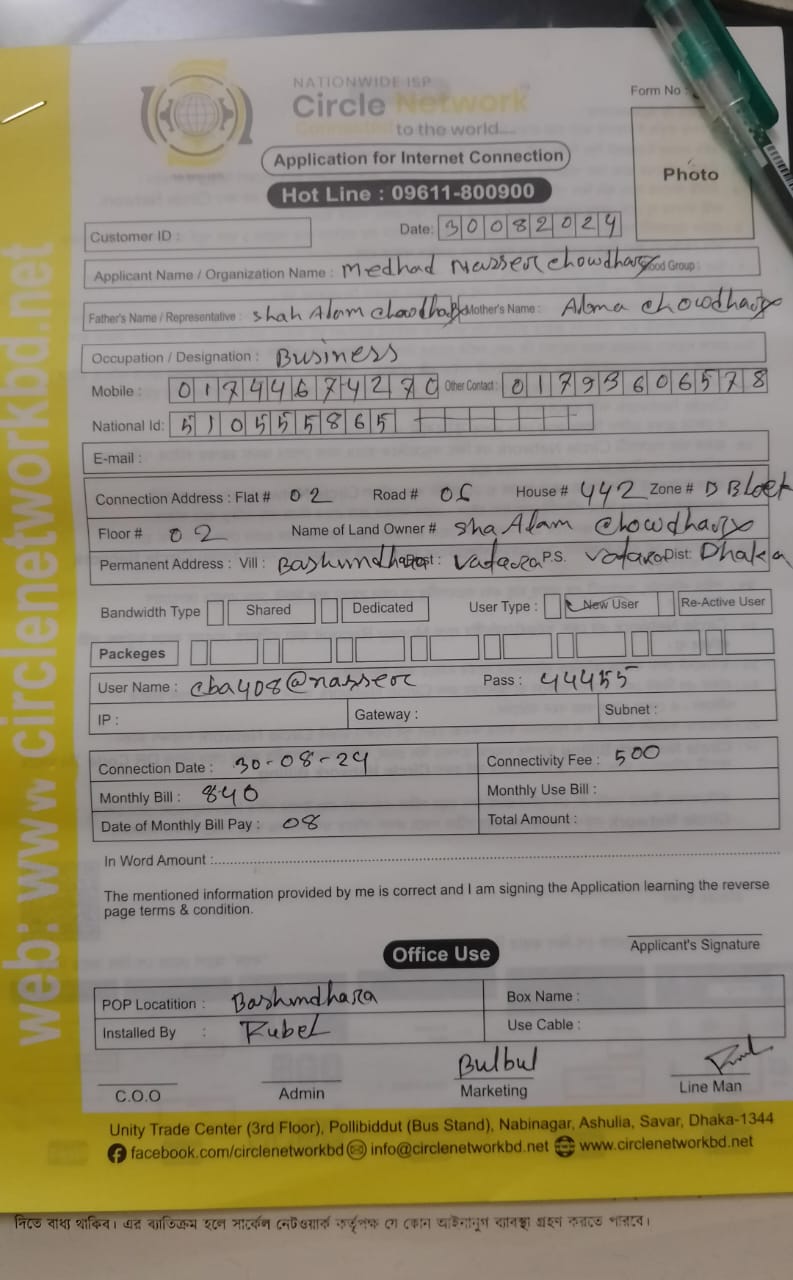 NATIONWIDE ISP
Circle Network
Connected to the world....
Form No :
Application for Internet Connection
Photo
Hot Line : 09611-800900
Customer ID :
Date: 30082024
Applicant Name / Organization Name : Medhad Nasser Chowdhury ood Group :
Father's Name / Representative : Shah Alam Chowdhury Mother's Name : Chowdhury
Occupation / Designation : Business
Mobile : 017446742 Other Contact : 01793606578
National Id: 5105555865
E-mail :
Connection Address : Flat # 02 Road # House # 442 Zone # D Block
Floor # 02 Name of Land Owner # Sha Alam Chowdhury
Permanent Address : Vill : Bashundhara Post : Vatara P.S. Vatara Dist: Dhaka
Bandwidth Type Shared Dedicated User Type : New User Re-Active User
Packeges
User Name : cba408@nasser Pass : 44455
IP : Gateway : Subnet :
Connection Date : 30-08-24 Connectivity Fee : 500
Monthly Bill : 840 Monthly Use Bill :
Date of Monthly Bill Pay : 08 Total Amount :
In Word Amount :
The mentioned information provided by me is correct and I am signing the Application learning the reverse
page terms & condition.
Applicant's Signature
Office Use
POP Locatition : Bashundhara Box Name :
Installed By : Rubel Use Cable :
Bulbul
C.O.O Admin Marketing Line Man
Unity Trade Center (3rd Floor), Pollibiddut (Bus Stand), Nabinagar, Ashulia, Savar, Dhaka-1344
facebook.com/circlenetworkbd info@circlenetworkbd.net www.circlenetworkbd.net
web: www.circlenetworkbd.net
দিতে বাধ্য থাকিব। এর ব্যতিক্রম হলে সার্কেল নেটওয়ার্ক কর্তৃপক্ষ যে কোন আইনানুগ ব্যবস্থা গ্রহন করতে পারবে।